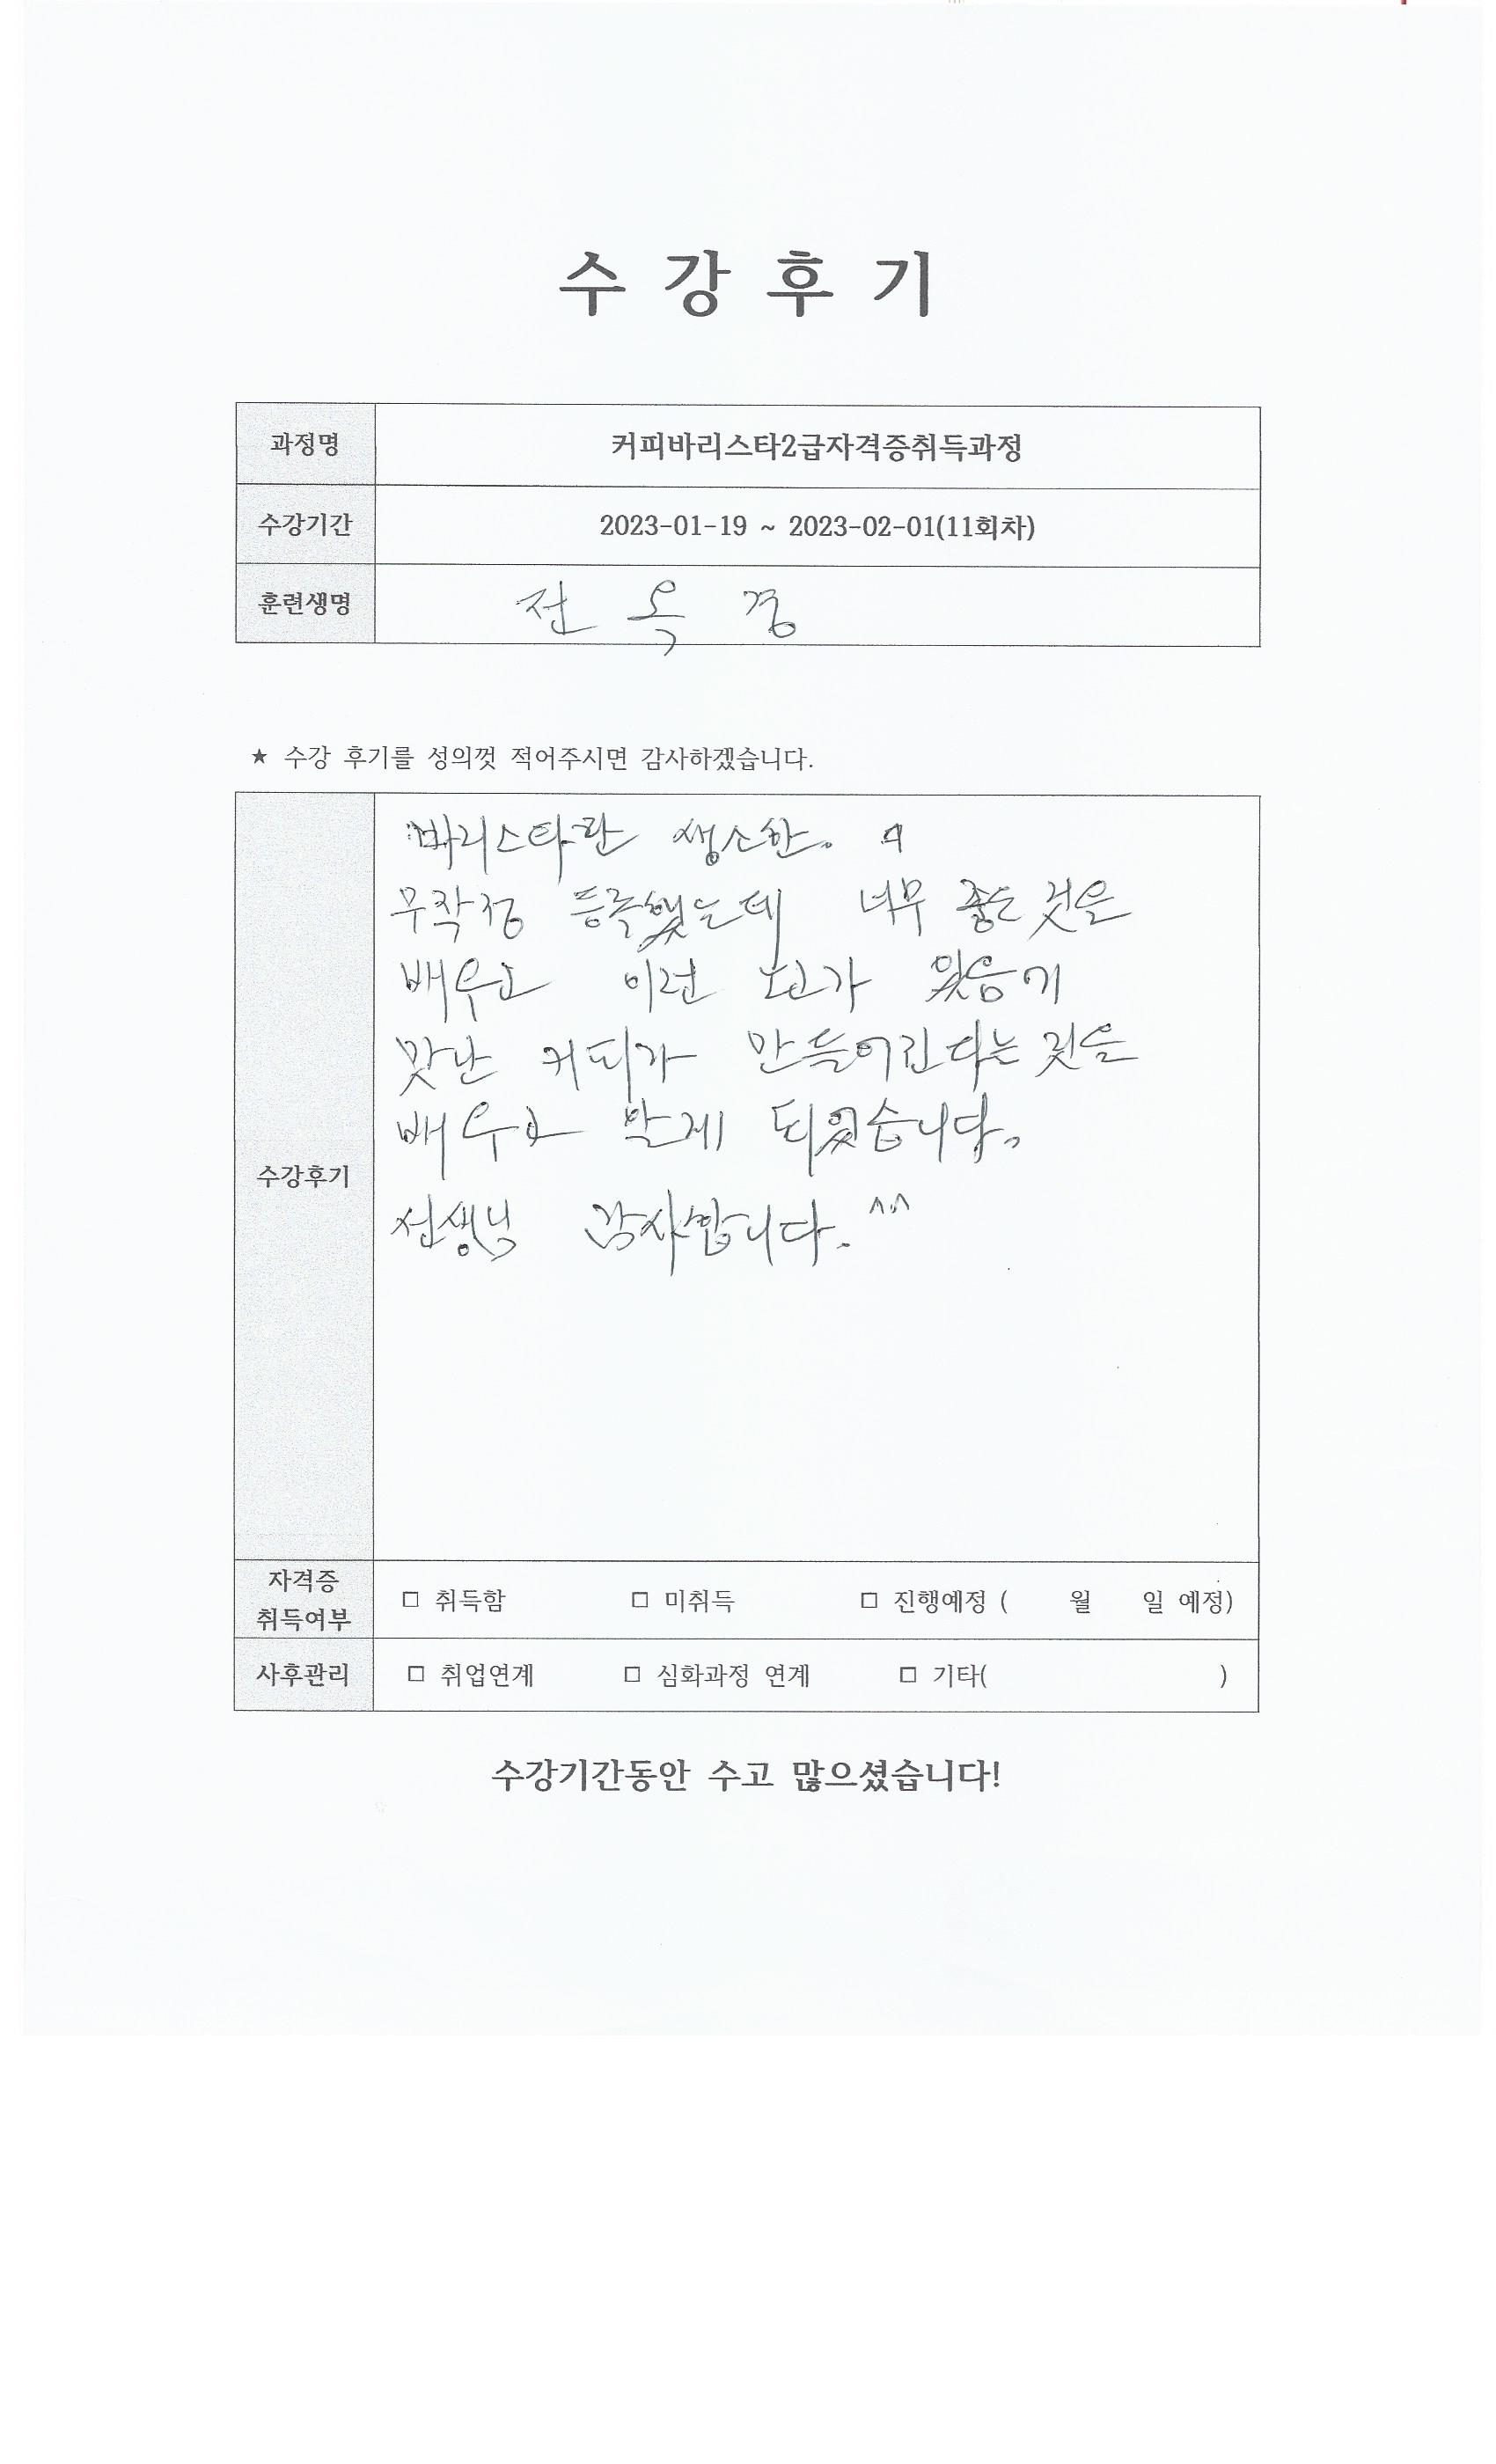 수 강 후 기
과정명 커피바리스타2급자격증취득과정
수강기간 2023-01-19 ~ 2023-02-01(11회차)
훈련생명 전 옥 경
★ 수강 후기를 성의껏 적어주시면 감사하겠습니다.
수강후기
바리스타란 생소한.
무작정 등록했는데 너무 좋은 것을
배우고 이런 노고가 있음기
맛난 커피가 만들어진다는 것을
배우고 알게 되었습니다.
선생님 감사합니다. ^^
자격증 취득여부 □ 취득함 □ 미취득 □ 진행예정 ( 월 일 예정)
사후관리 □ 취업연계 □ 심화과정 연계 □ 기타( )
수강기간동안 수고 많으셨습니다!